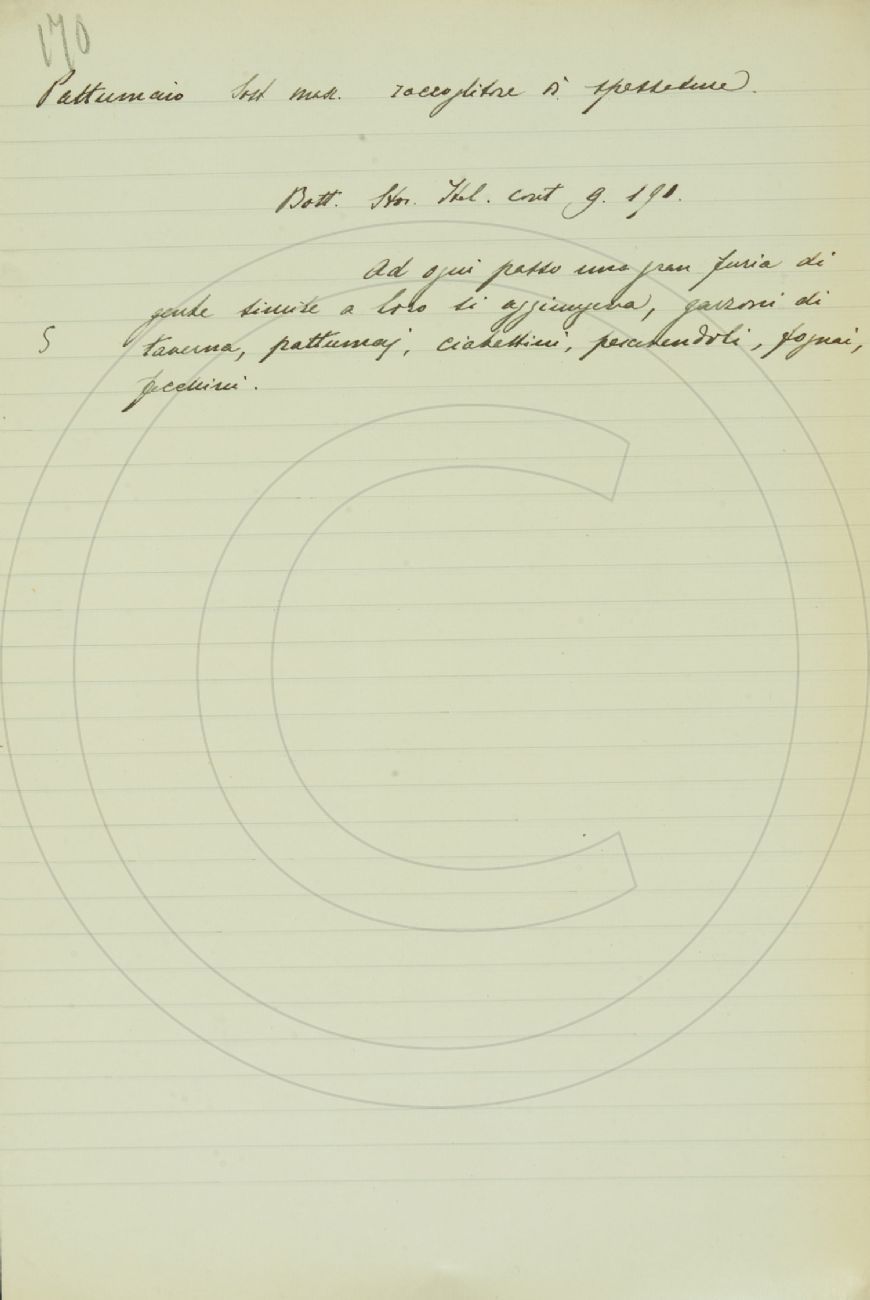 170
Pattumaio Sost. mas. raccoglitore di spazzature.
Bott. Stor. Ital. cont. 9. 190.
Ad ogni passo una gran furia di
gente simile a loro si aggiungeva, garzoni di
5 taverna, pattumaj, ciabattini, pescivendoli, fognai,
facchini.